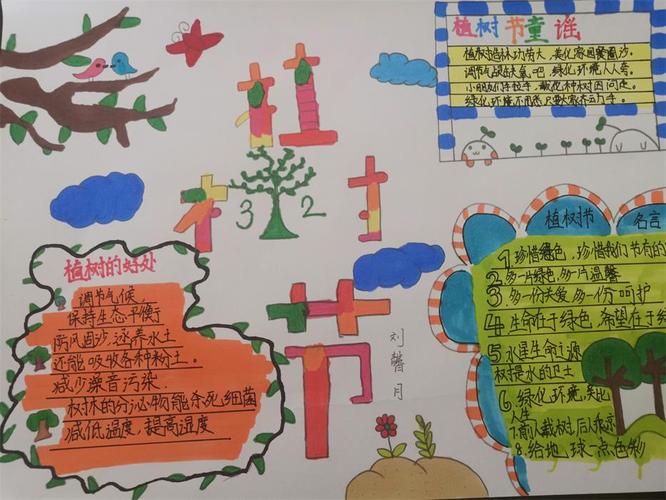 植树节童谣
植树造林功劳大,美化家园餐圈沙。
调节气候出大氧吧,绿化环境人人夸。
小朋友们手拉手,栽花种树田间走。
绿化环境不用愁,只要大家齐动手。
植树节
3 2
植树的好处
调节气候、
保持生态平衡于
防风固沙.还养水土
还能吸收各种粉土。
减少澡音污染.
树林的分泌物能杀死细菌
减低温度,提高湿度
刘馨月
植树节 名言
1 珍惜绿色,珍惜我们节有的
2 多一片绿色,多一片温馨
3 多一份关爱,多一份呵护
4 生命在于绿色,希望在于绿
5 水是生命之源
树是水的卫士
6、绿化环境,美化
人生
7.前人栽树后人乘凉
8.给地球一点色彩